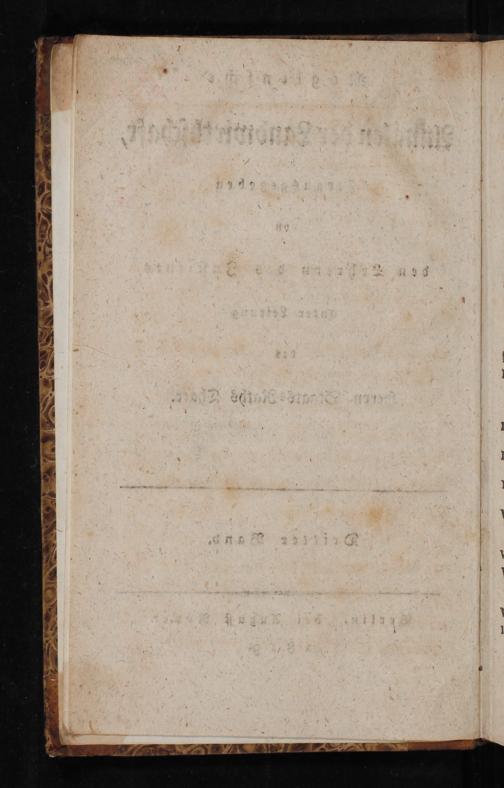 Annalen der Landwirthschaft,
Herausgegeben
von
den Lehrern des Instituts
unter Leitung
des
Herrn Staats-Raths Thaer.
Dritter Band.
Berlin, bei August